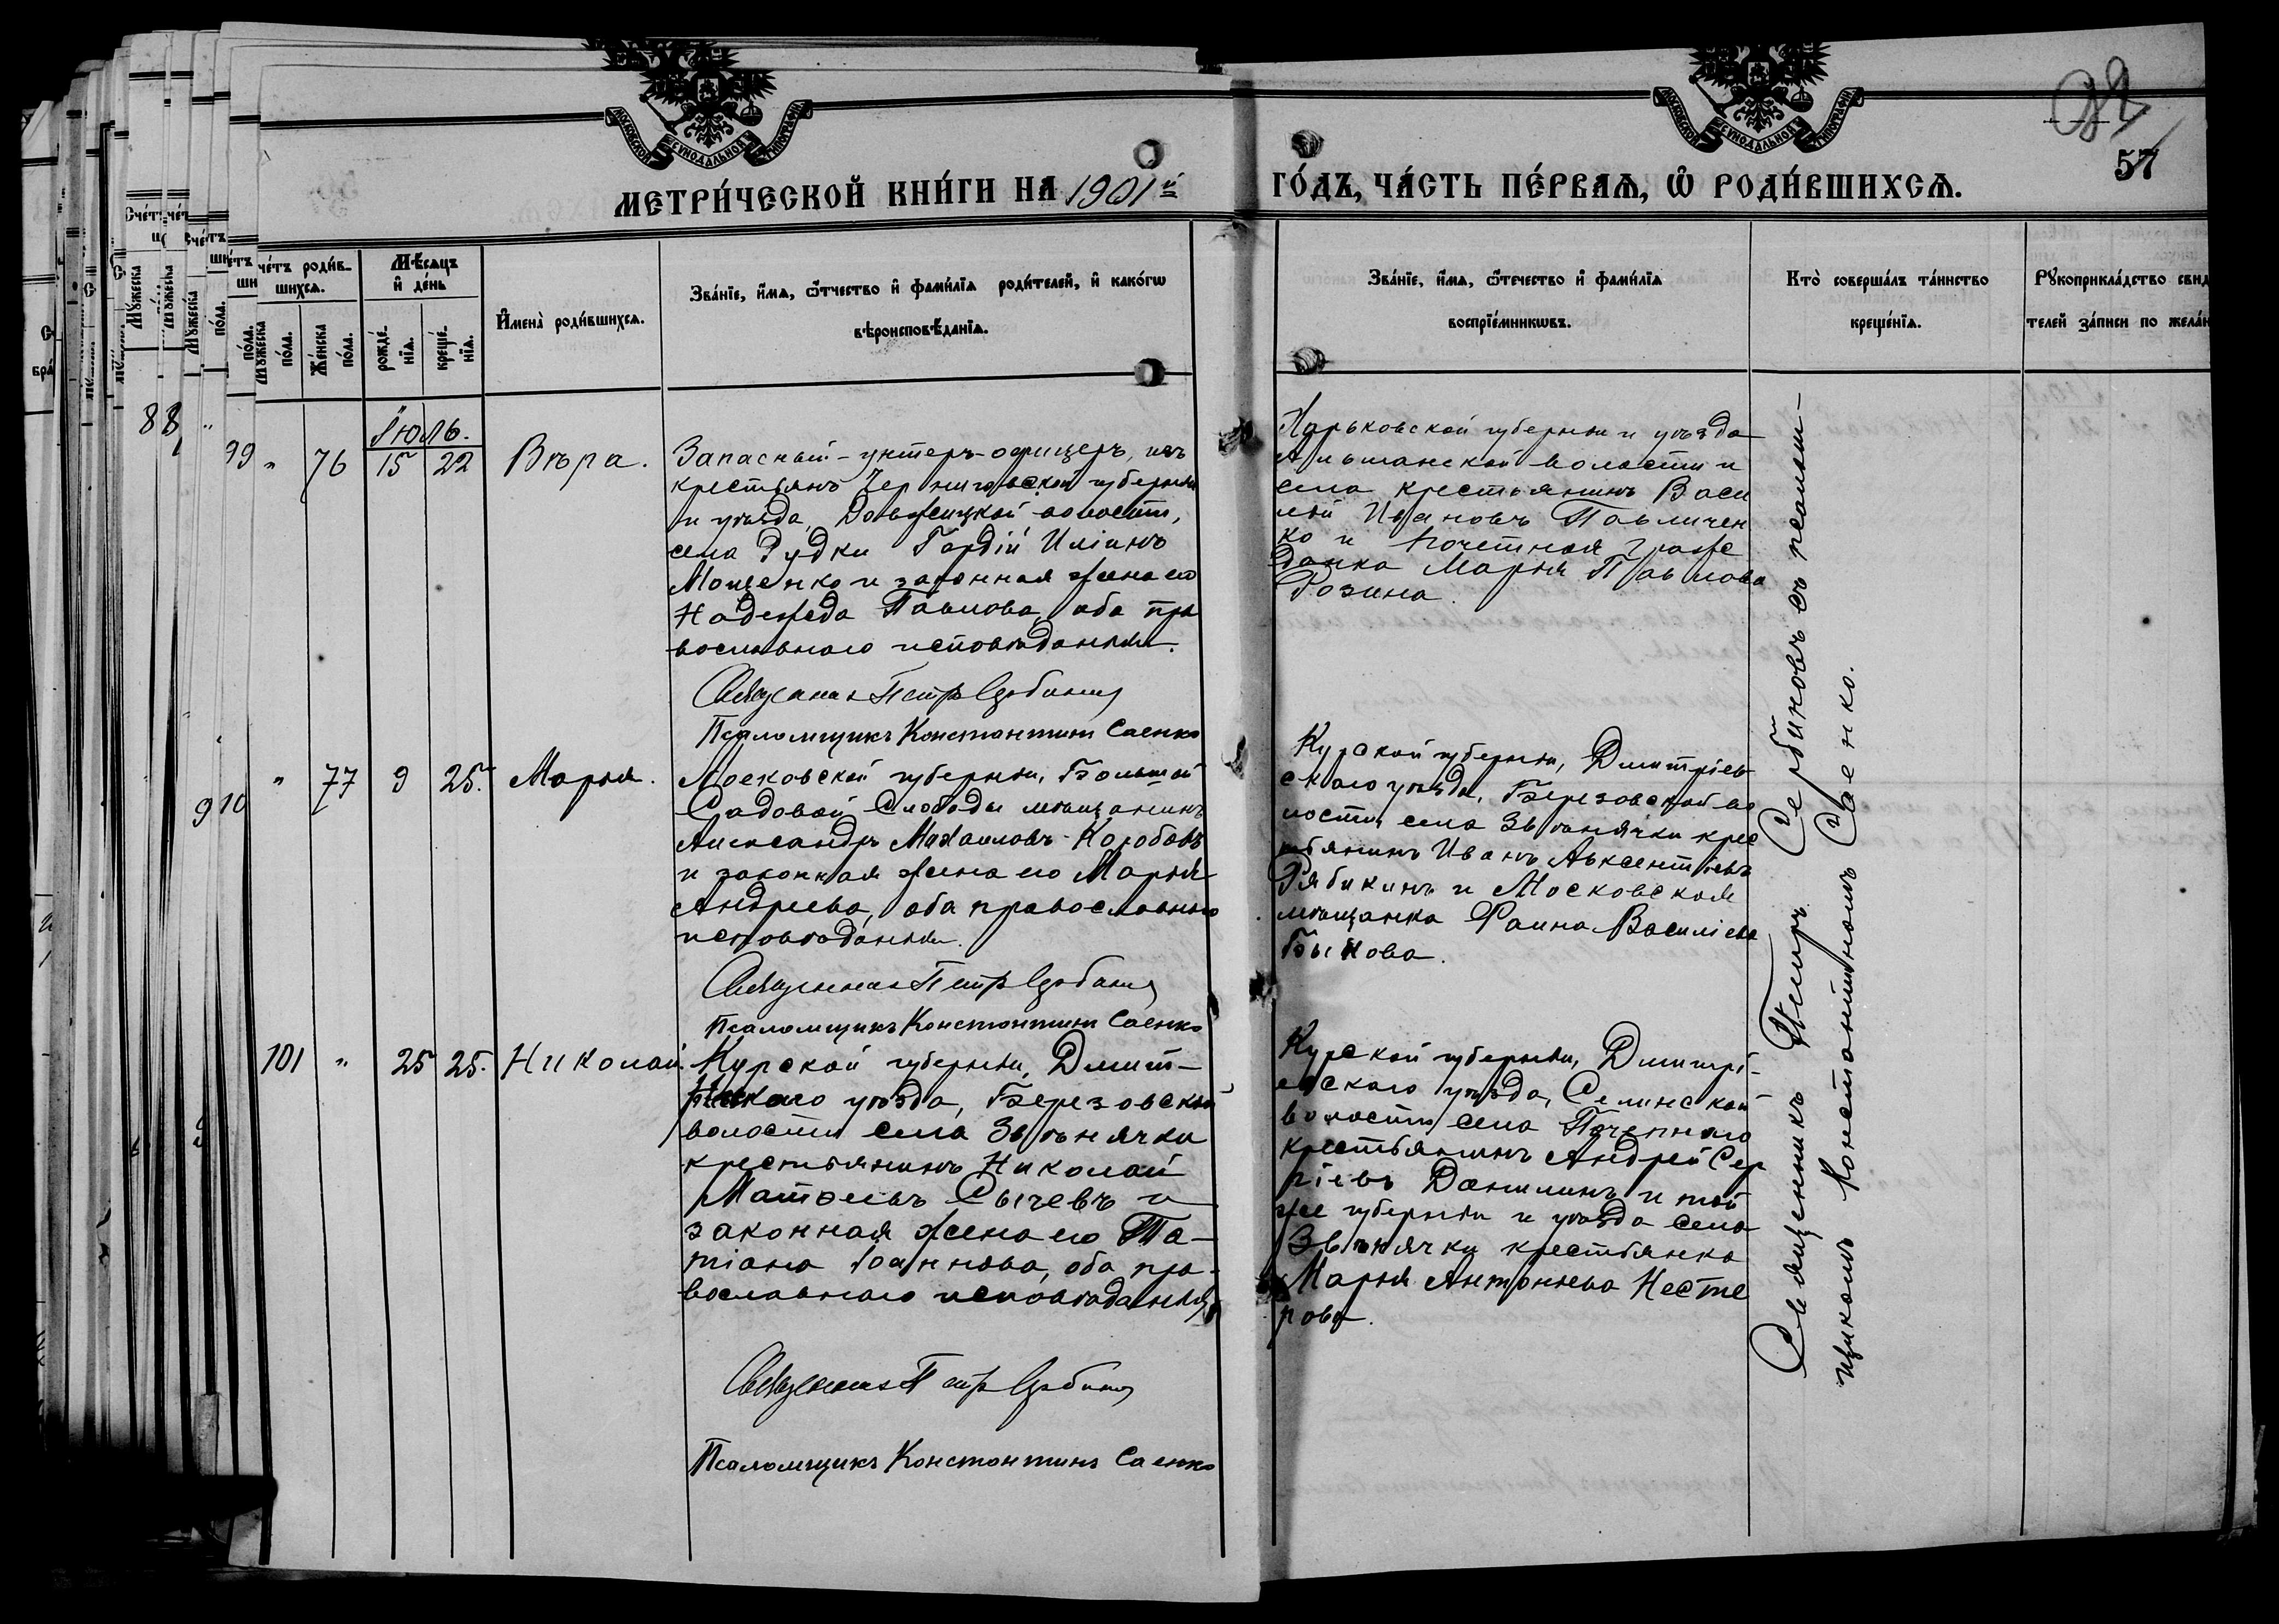 МЕТРИ́ЧЕСКОЙ КНИ́ГИ НА 1901й
ГО́ДЪ, ЧА́СТЬ ПЕ́РВАѦ, Ѡ РОДИ́ВШИХСѦ.
57
Сче́тъ роди́в-
шихсѧ.
Мꙋ́жеска
по́ла.
Же́нска
по́ла.
Мѣ́сѧцъ
и҆ де́нь
рожде́-
нїѧ.
креще́-
нїѧ.
И҆мена̀ роди́вшихсѧ.
Зва́нїе, и҆́мѧ, ѻ҆́тчество и҆ фами́лїѧ роди́телей, и҆ како́гѡ
вѣроисповѣ́данїѧ.
Зва́нїе, и҆́мѧ, ѻ҆те́чество и҆ фами́лїѧ
воспрїе́мникѡвъ.
Кто̀ соверша́лъ та́инство
креще́нїѧ.
Рꙋкоприкла́дство свид
телей за́писи по жела́н
Іюль.
" 76 15 22 Вѣра.
Запасный-унтеръ-офицеръ, изъ
крестьянъ Черниговской губерніи
и уѣзда, Довжицкой волости,
села Рудки Гордій Иліинъ
Мощенко и законная жена его
Надежда Павлова, оба пра
вославнаго исповѣданія.
Священникъ Петръ Сербиновъ
Псаломщикъ Константинъ Саенко
Харьковской губерніи и уѣзда
Ольшанской волости и
села крестьянинъ Васи
лій Ивановъ Павличен
ко и почетная граж
данка Марія Павлова
Розина.
" 77 9 25. Марія.
Московской губерніи, Большой
Садовой Слободы мѣщанинъ
Александръ Михаиловъ Коробовъ
и законная жена его Марія
Андреева, оба православнаго
исповѣданія.
Священникъ Петръ Сербиновъ
Псаломщикъ Константинъ Саенко
Курской губерніи, Димитріев
скаго уѣзда, Березовской во
лости, села Звѣнячки крес
тьянинъ Иванъ Авксентіевъ
Рябикинъ и Московская
мѣщанка Фаина Василіева
Быкова.
101 " 25 25. Николай.
Курской губерніи, Димит-
ріевскаго уѣзда, Березовской
волости села Звѣнячки
крестьянинъ Николай
Матѳеевъ Сычевъ и
законная жена его Та-
тіана Іоаннова, оба пра-
вославнаго исповѣданія.
Священникъ Петръ Сербиновъ
Псаломщикъ Константинъ Саенко
Курской губерніи, Димитрі-
евскаго уѣзда, Селинской
волости села Почепнаго
крестьянинъ Андрей Сер
гіевъ Данилинъ и той
же губерніи и уѣзда села
Звѣнячки крестьянка
Марія Антоніева Несте
рова.
Священникъ Петръ Сербиновъ съ псалом-
щикомъ Константиномъ Саенко.